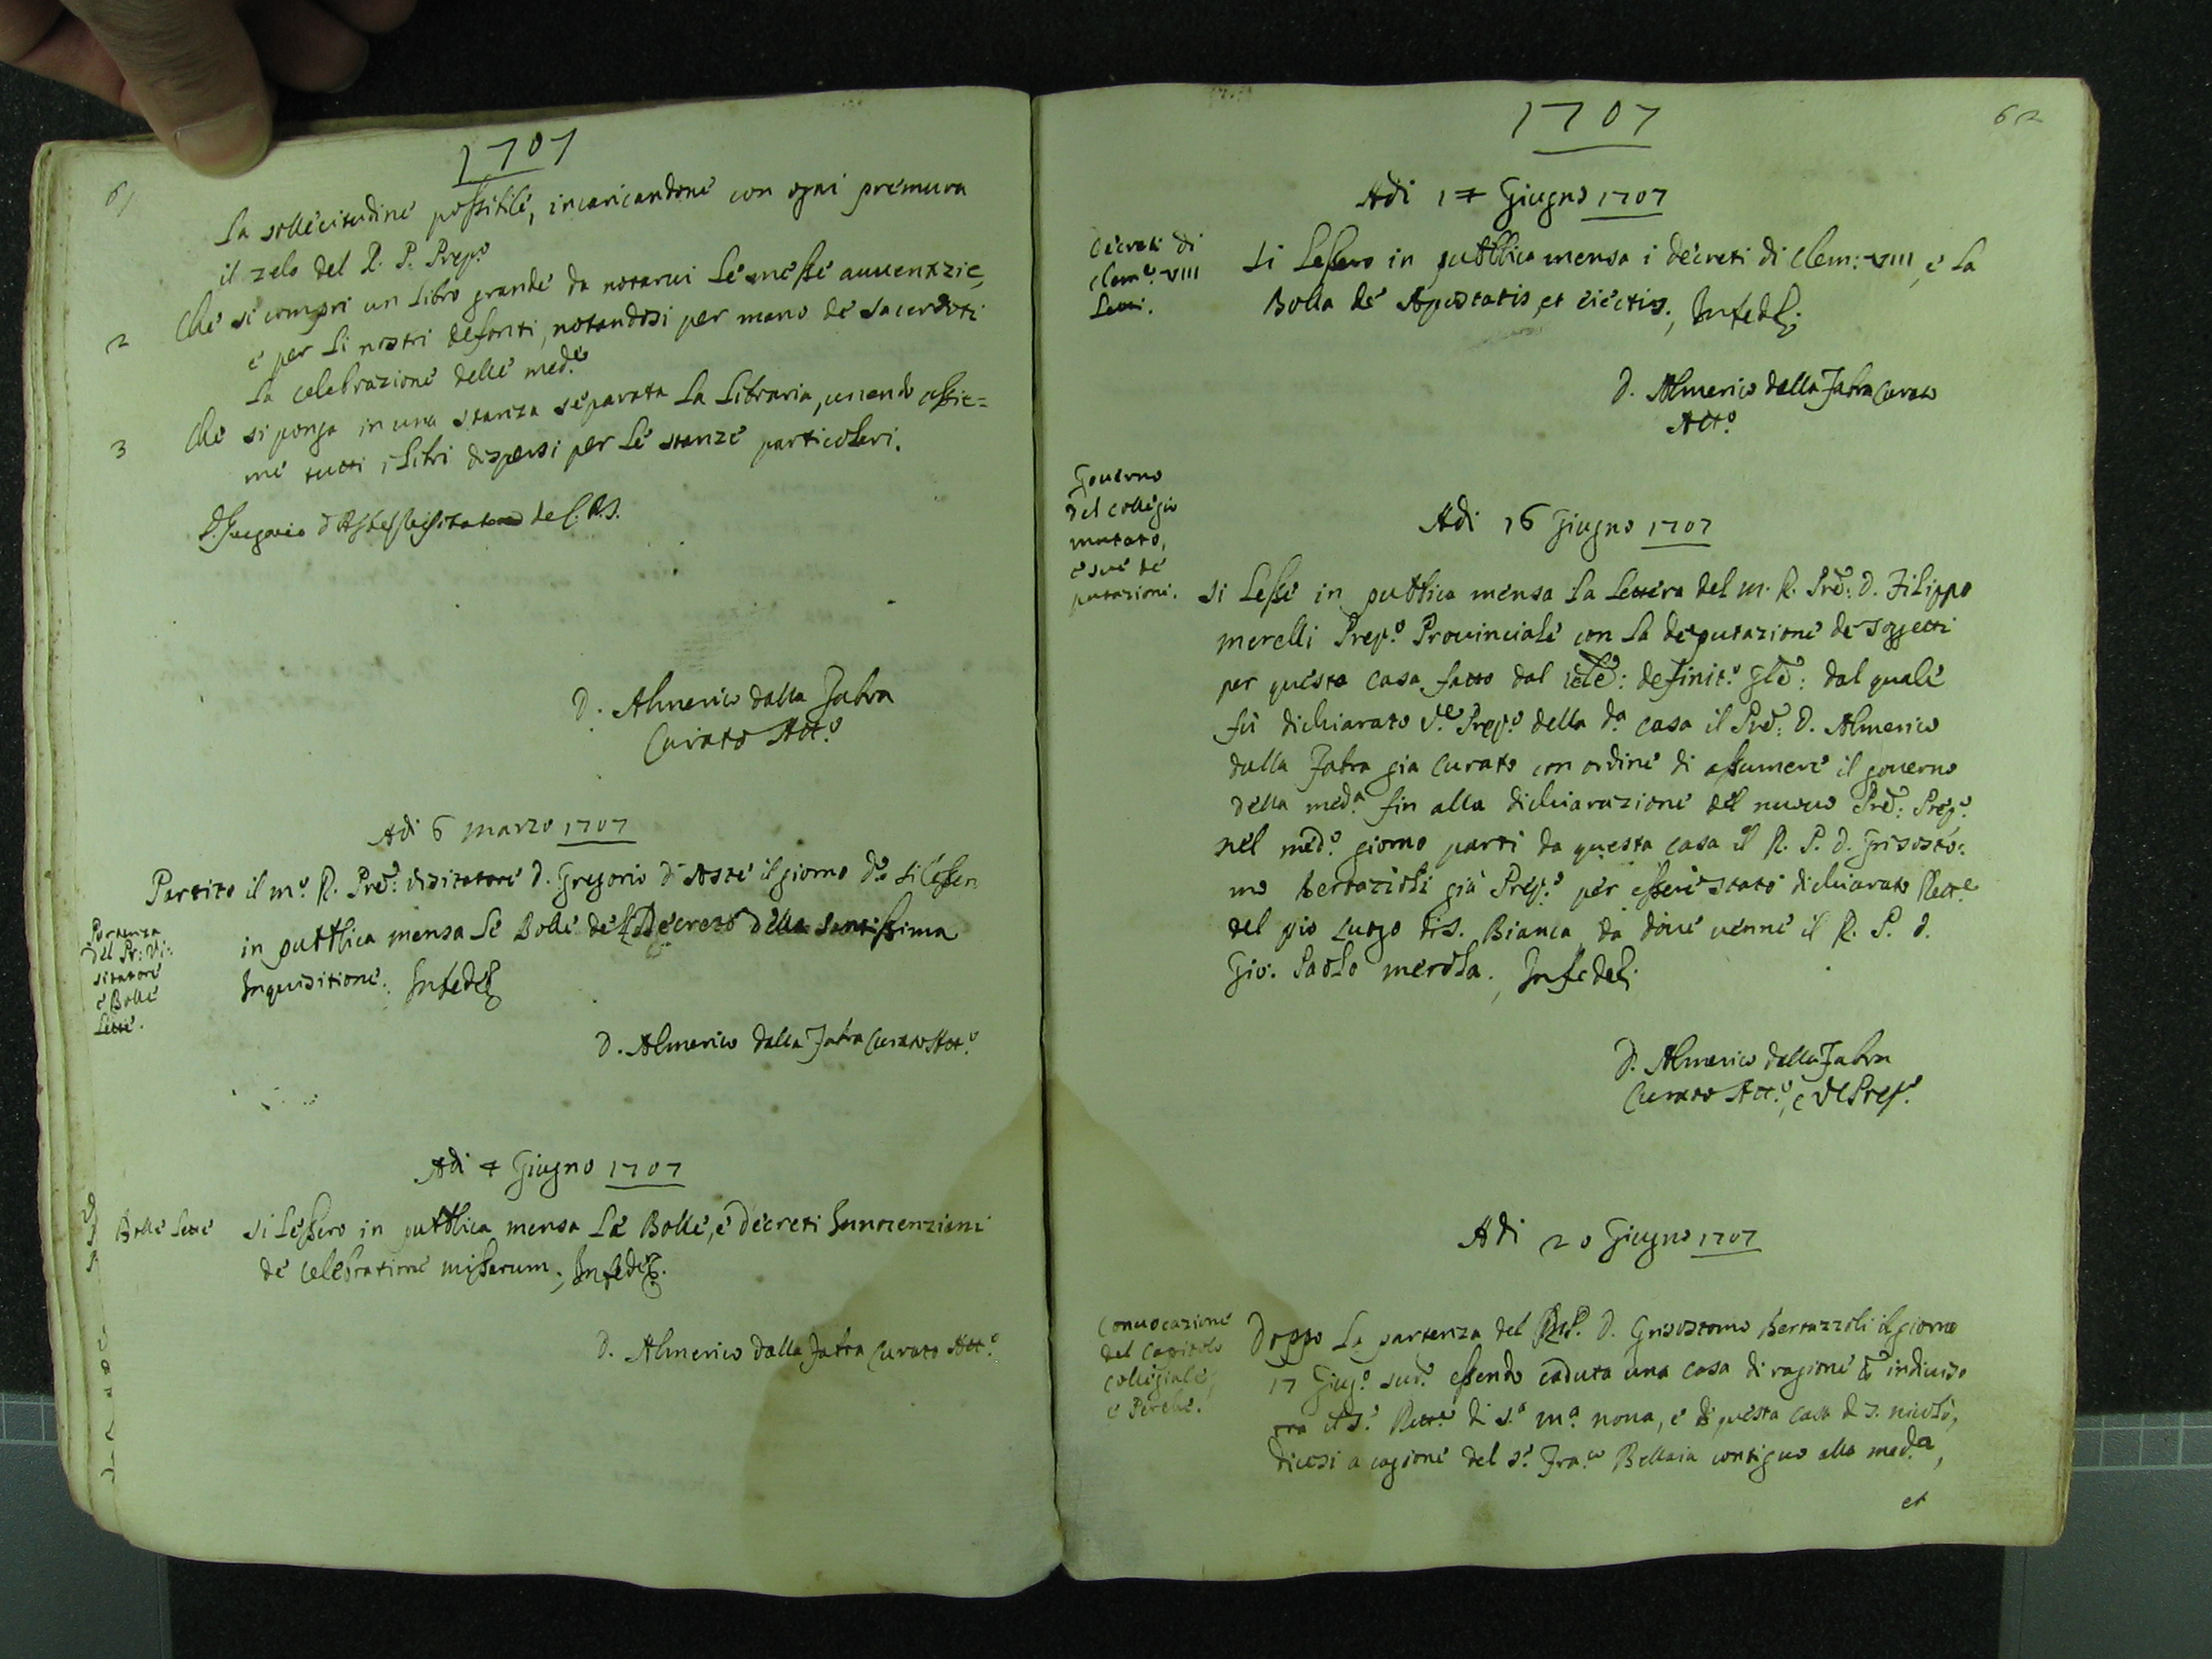 1707
61
la sollecitudine possibile, incaricandone con ogni premura
il zelo del R. P. Prep.o
2 Che si compri un libro grande da notarvi le messe auuentizie,
e per li nostri defonti, notandosi per mano de sacerdoti
la celebrazione delle med.e
3 Che si ponga in una stanza separata la libraria, unendo assie=
me tutti i libri dispersi per le stanze particolari.
D. Gregorio d'Aste Visitatore de C. R. S.
D. Almerico dalla Fabra
Curato Att.o
Adi 6 marzo 1707
Partito il m.o R. Pre: visitatore D. Gregorio di Aste il giorno d.o si lessero
in pubblica mensa le Bolle del Decreto della Santissima
Inquisitione. In fede
Partenza
del Pr: Vi:
sitatore
e Bolle
lette.
D. Almerico dalla Fabra Curato Att.o
Adi 4 Giugno 1707
Bolle lette
si lessero in pubblica mensa le Bolle, e decreti Innocenziani
de celebratione missarum; In fede.
D. Almerico dalla Fabra Curato Att.o
1707
62
Adi 14 Giugno 1707
Decreti di
Clem.e VIII
Letti.
Si lessero in pubblica mensa i decreti di Clem: VIII, e la
Bolla de Apostatis, et eiectis; In fede
D. Almerico dalla Fabra Curato
Att.o
Governo
del collegio
mutato,
e sue de
putazioni.
Adi 16 Giugno 1707
Si lesse in pubblica mensa la lettera del M. R. Pre: D. Filippo
merelli Prep.o Provinciale con la deputazione de soggetti
per questa casa fatto dal definit.o Gle: dal quale
fù dichiarato V.e Prep.o della d.a casa il Pre: D. Almerico
dalla Fabra gia Curato con ordine di assumere il governo
della med.a fin alla dichiarazione del nuovo Pre: Prep.o
nel med.o giorno partì da questa casa il R. P. D. Grisosto:
mo Bertazzoli già Prep.o per essere stato dichiarato Rett.e
del pio Luogo di S. Bianca, da dove venne il R. P. D.
Gio: Paolo merola. In fede
D. Almerico dalla Fabra
Curato Att.o, e V.e Prep.o
Adi 20 Giugno 1707
Convocazione
del Capitolo
collegiale,
e Perche.
Doppo la partenza del R. P. D. Grisostomo Bertazzoli il giorno
17 Giug.o sud.o essendo caduta una casa di ragione indiviso
tra il S.r Rett.e di S.a M.a nova, e di questa casa di S. nicolò,
dicesi a cagione del S.r Fra.co Bellaia contiguo alla med.a,
et